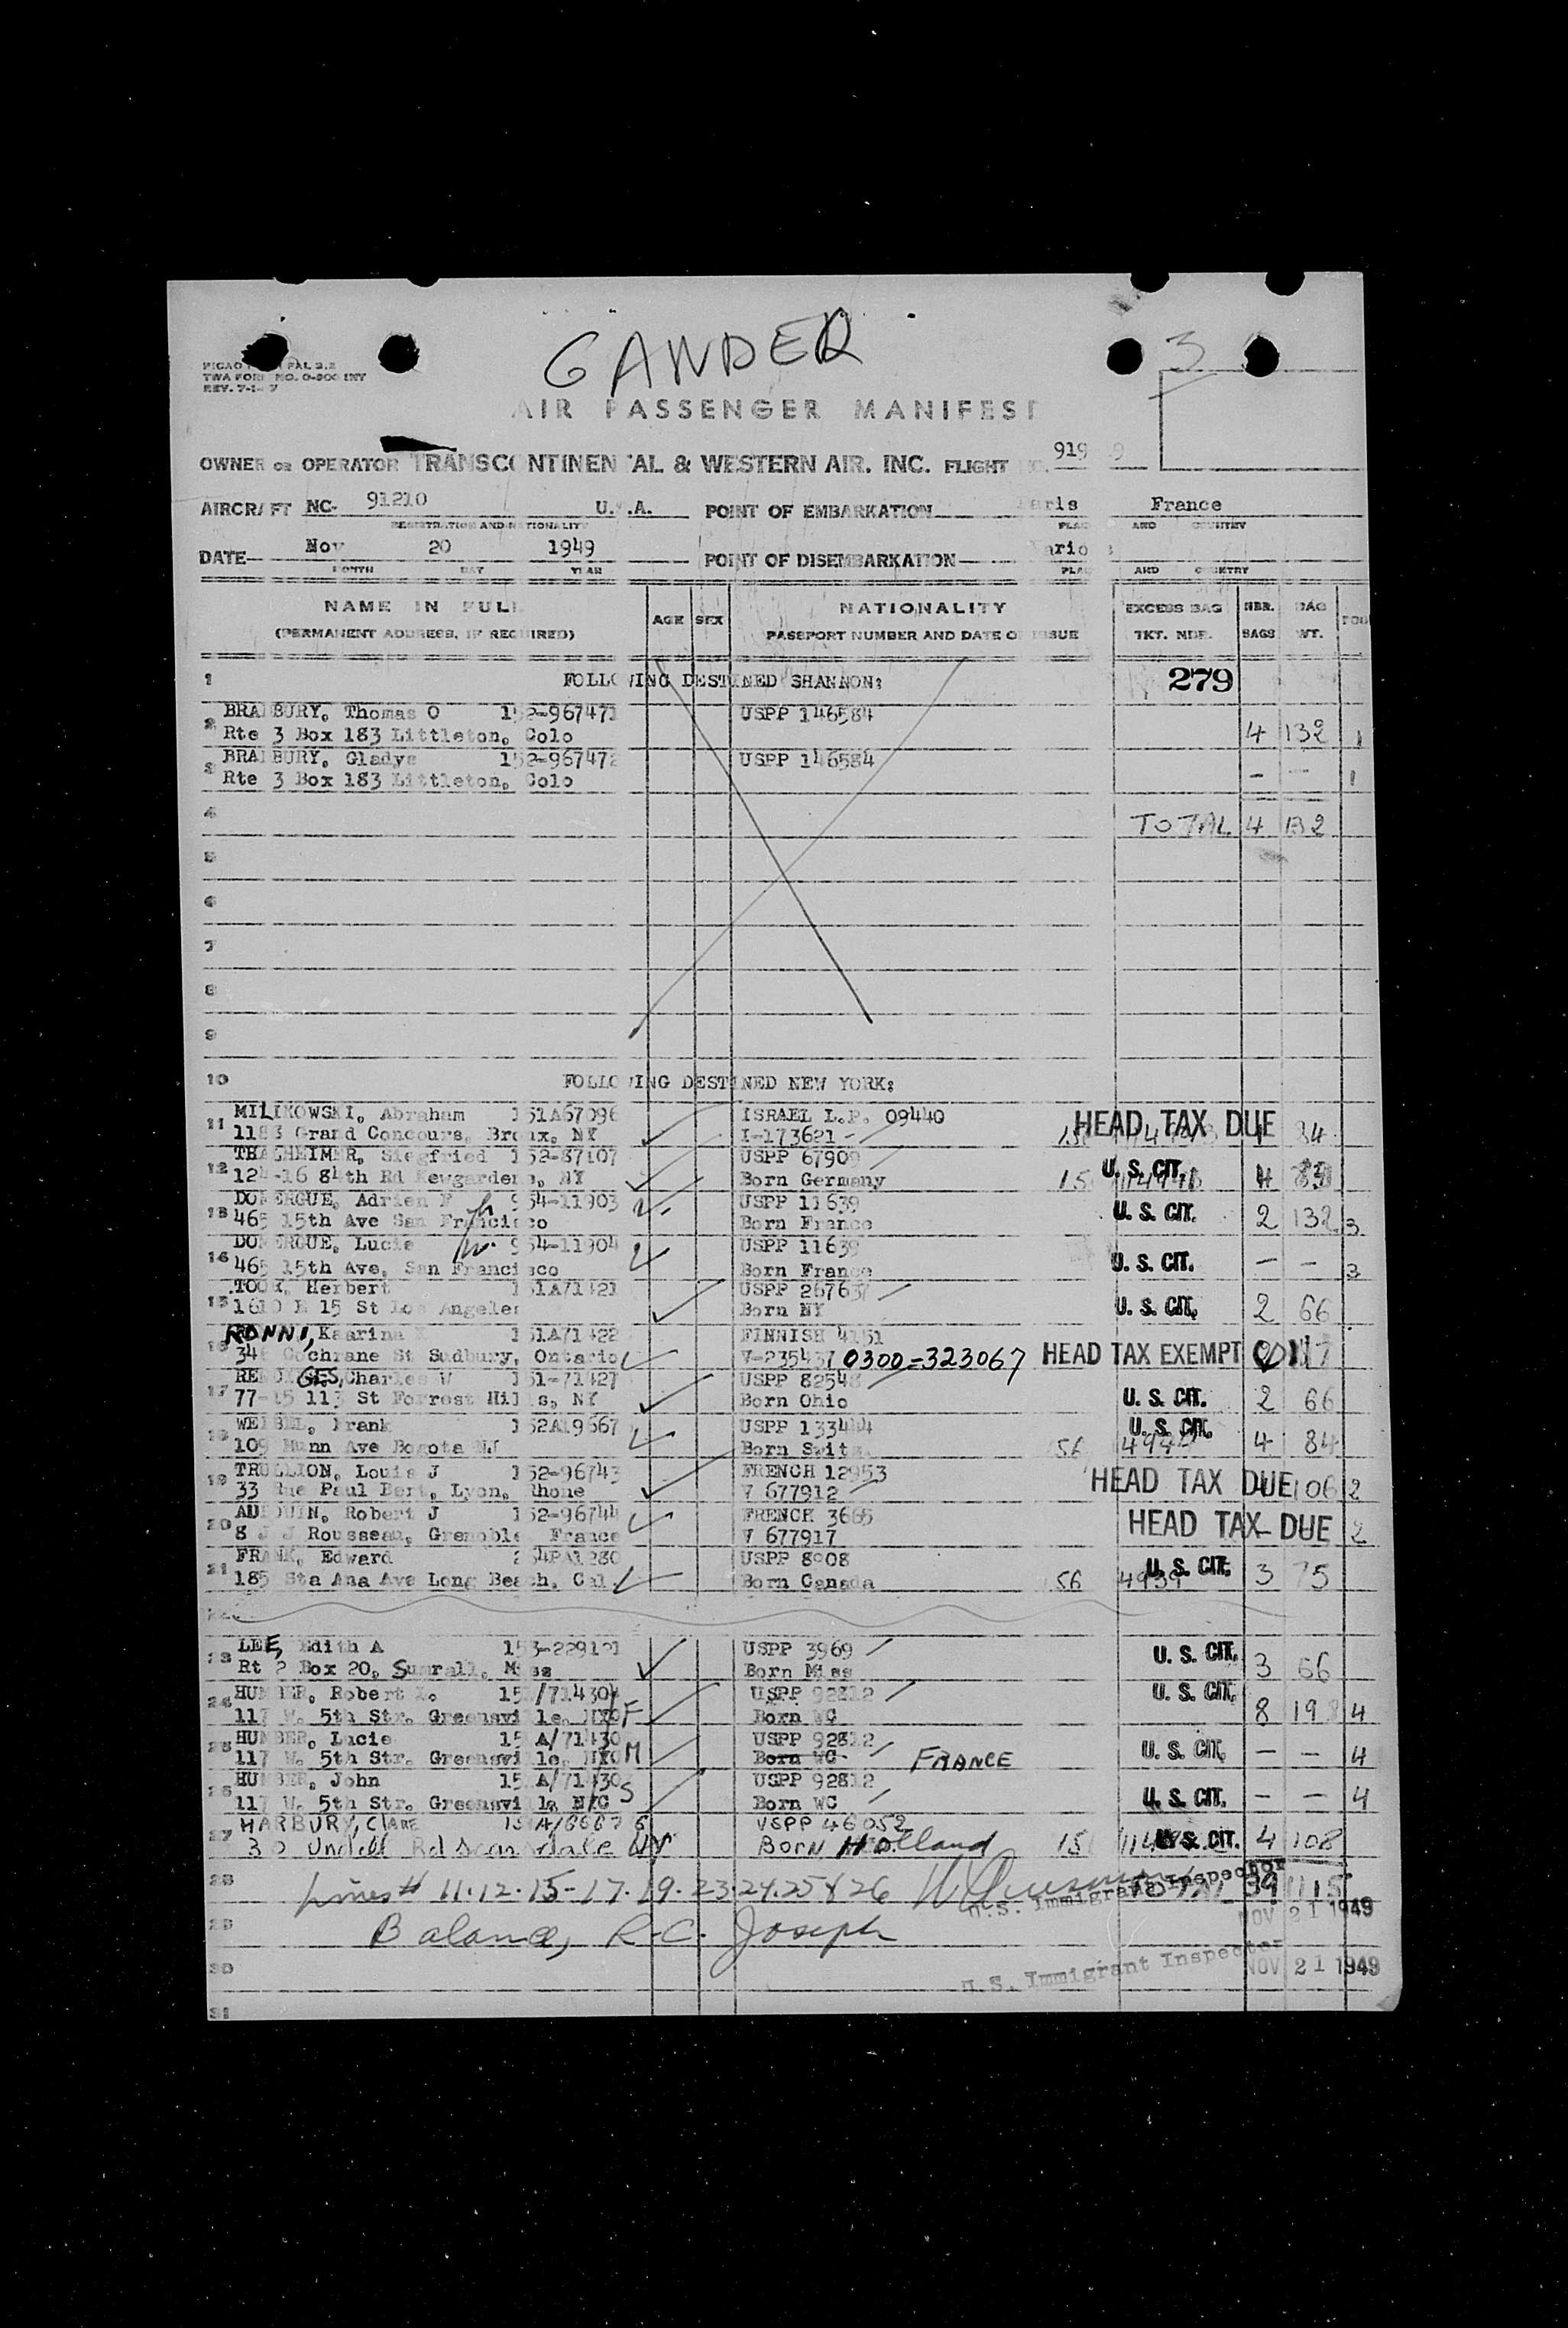 GANDER
3
TWA FORM NO. O-800 INT
REV. 7-1-47
AIR PASSENGER MANIFEST
OWNER OR OPERATOR TRANSCONTINENTAL & WESTERN AIR. INC. FLIGHT NO. 919
AIRCRAFT NC- 91210 U.S.A. POINT OF EMBARKATION Paris France
REGISTRATION AND NATIONALITY PLACE AND COUNTRY
DATE Nov 20 1949 POINT OF DISEMBARKATION Various
MONTH DAY YEAR PLACE AND COUNTRY
NAME IN FULL AGE SEX NATIONALITY EXCESS BAG NBR. BAG
(PERMANENT ADDRESS, IF REQUIRED) PASSPORT NUMBER AND DATE OF ISSUE TKT. NBR. BAGS WT.
1 FOLLOWING DESTINED SHANNON: 279
2 BRADBURY, Thomas O 152-967471 USPP 146584
Rte 3 Box 183 Littleton, Colo 4 132 1
3 BRADBURY, Gladys 152-967472 USPP 146584
Rte 3 Box 183 Littleton, Colo - - 1
4 TOTAL 4 132
5
6
7
8
9
10 FOLLOWING DESTINED NEW YORK:
11 MILIKOWSKI, Abraham 151A67096 ISRAEL L.P. 09440 HEAD TAX DUE
1183 Grand Concours, Bronx, NY I-173621 84
12 THALHEIMER, Siegfried 152-87107 USPP 67909 U. S. CIT.
124-16 84th Rd Kewgardens, NY Born Germany 4
13 DOMERGUE, Adrien F 954-11903 USPP 11639 U. S. CIT.
465 15th Ave San Francisco Born France 2 132 3
14 DOMERGUE, Lucie 954-11904 USPP 11639 U. S. CIT.
465 15th Ave, San Francisco Born France - - 3
15 TOOK, Herbert 151A71421 USPP 267637
1610 E 15 St Los Angeles Born NY U. S. CIT. 2 66
16 RONNI, Kaarina 151A71422 FINNISH 4151
34 Cochrane St Sudbury, Ontario V-235437 0300-323067 HEAD TAX EXEMPT
17 GES, Charles W 151-71427 USPP 82548
77-15 113 St Forrest Hills, NY Born Ohio U. S. CIT. 2 66
18 WEIBEL, Frank 152A19667 USPP 133444 U. S. CIT.
109 Munn Ave Bogota NJ Born Switz. 56 4 84
19 TRULLION, Louis J 152-96743 FRENCH 12953 HEAD TAX DUE 106 2
33 Rue Paul Bert, Lyon, Rhone V 677912
20 Robert J 152-96744 FRENCH 3665 HEAD TAX DUE 2
8 J J Rousseau, Grenoble France V 677917
21 FRANK, Edward 254PA1280 USPP 8908 U. S. CIT.
185 Sta Ana Ave Long Beach, Cal. Born Canada 56 3 75
22
23 LEE, Edith A 153-229121 USPP 3969 U. S. CIT.
Rt 2 Box 20, Sumrall, Miss Born Miss 3 66
24 HUMBER, Robert L. 151/71430 USPP 92812 U. S. CIT.
117 W. 5th Str. Greensville, F Born WC 8 198 4
25 HUMBER, Lucie 15 A/71430 USPP 92812 U. S. CIT.
117 W. 5th Str. Greensville, M Born WC FRANCE - - 4
26 HUMBER, John 15 A/71430 USPP 92812
117 W. 5th Str. Greensville N/C S Born WC U. S. CIT. - - 4
27 HARBURY, CLARE USPP 46052
Rd Scarsdale NY Born Holland U. S. CIT. 4 108
28 Lines # 11.12.15-17.19.23.24.25 & 26 TOTAL 39 1115
U.S. Immigrant Inspector
29 Balance, R.C. Joseph NOV 21 1949
30 U.S. Immigrant Inspector NOV 21 1949
31